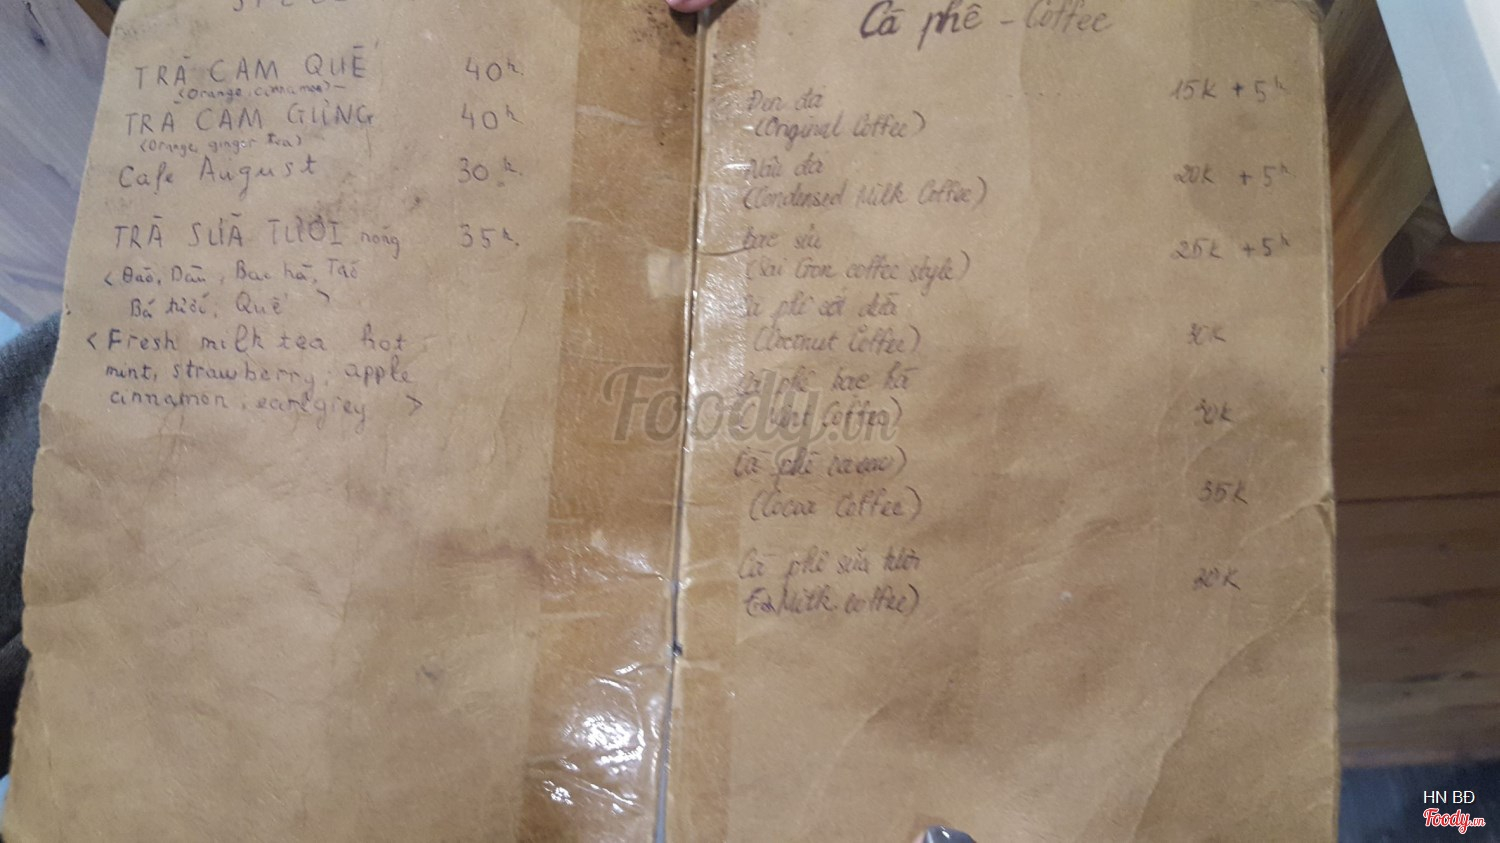 TRÀ CAM QUẾ 40k.
(Orange, cinnamon)
TRÀ CAM GỪNG 40k
(Orange, ginger tea)
Cafe August 30k.
TRÀ SỮA TƯƠI nóng 35k.
(Đào, Dâu, Bạc hà, Táo
Bá tước, Quế)
<Fresh milk tea hot
mint, strawberry, apple
cinnamon, earlgrey >
Cà phê - Coffee
Đen đá 15K + 5k
(Original Coffee)
Nâu đá 20K + 5k
(Condensed Milk Coffee)
Bạc sỉu 25K + 5k
(Sai Gon coffee style)
Cà phê cốt dừa
(Coconut Coffee) 30K
Cà phê bạc hà
(Mint Coffee) 30K
Cà phê cacao)
(Cocoa Coffee) 35K
Cà phê sữa tươi
(Fresh Milk coffee) 20K
Foody.vn
HN BĐ
Foody.vn